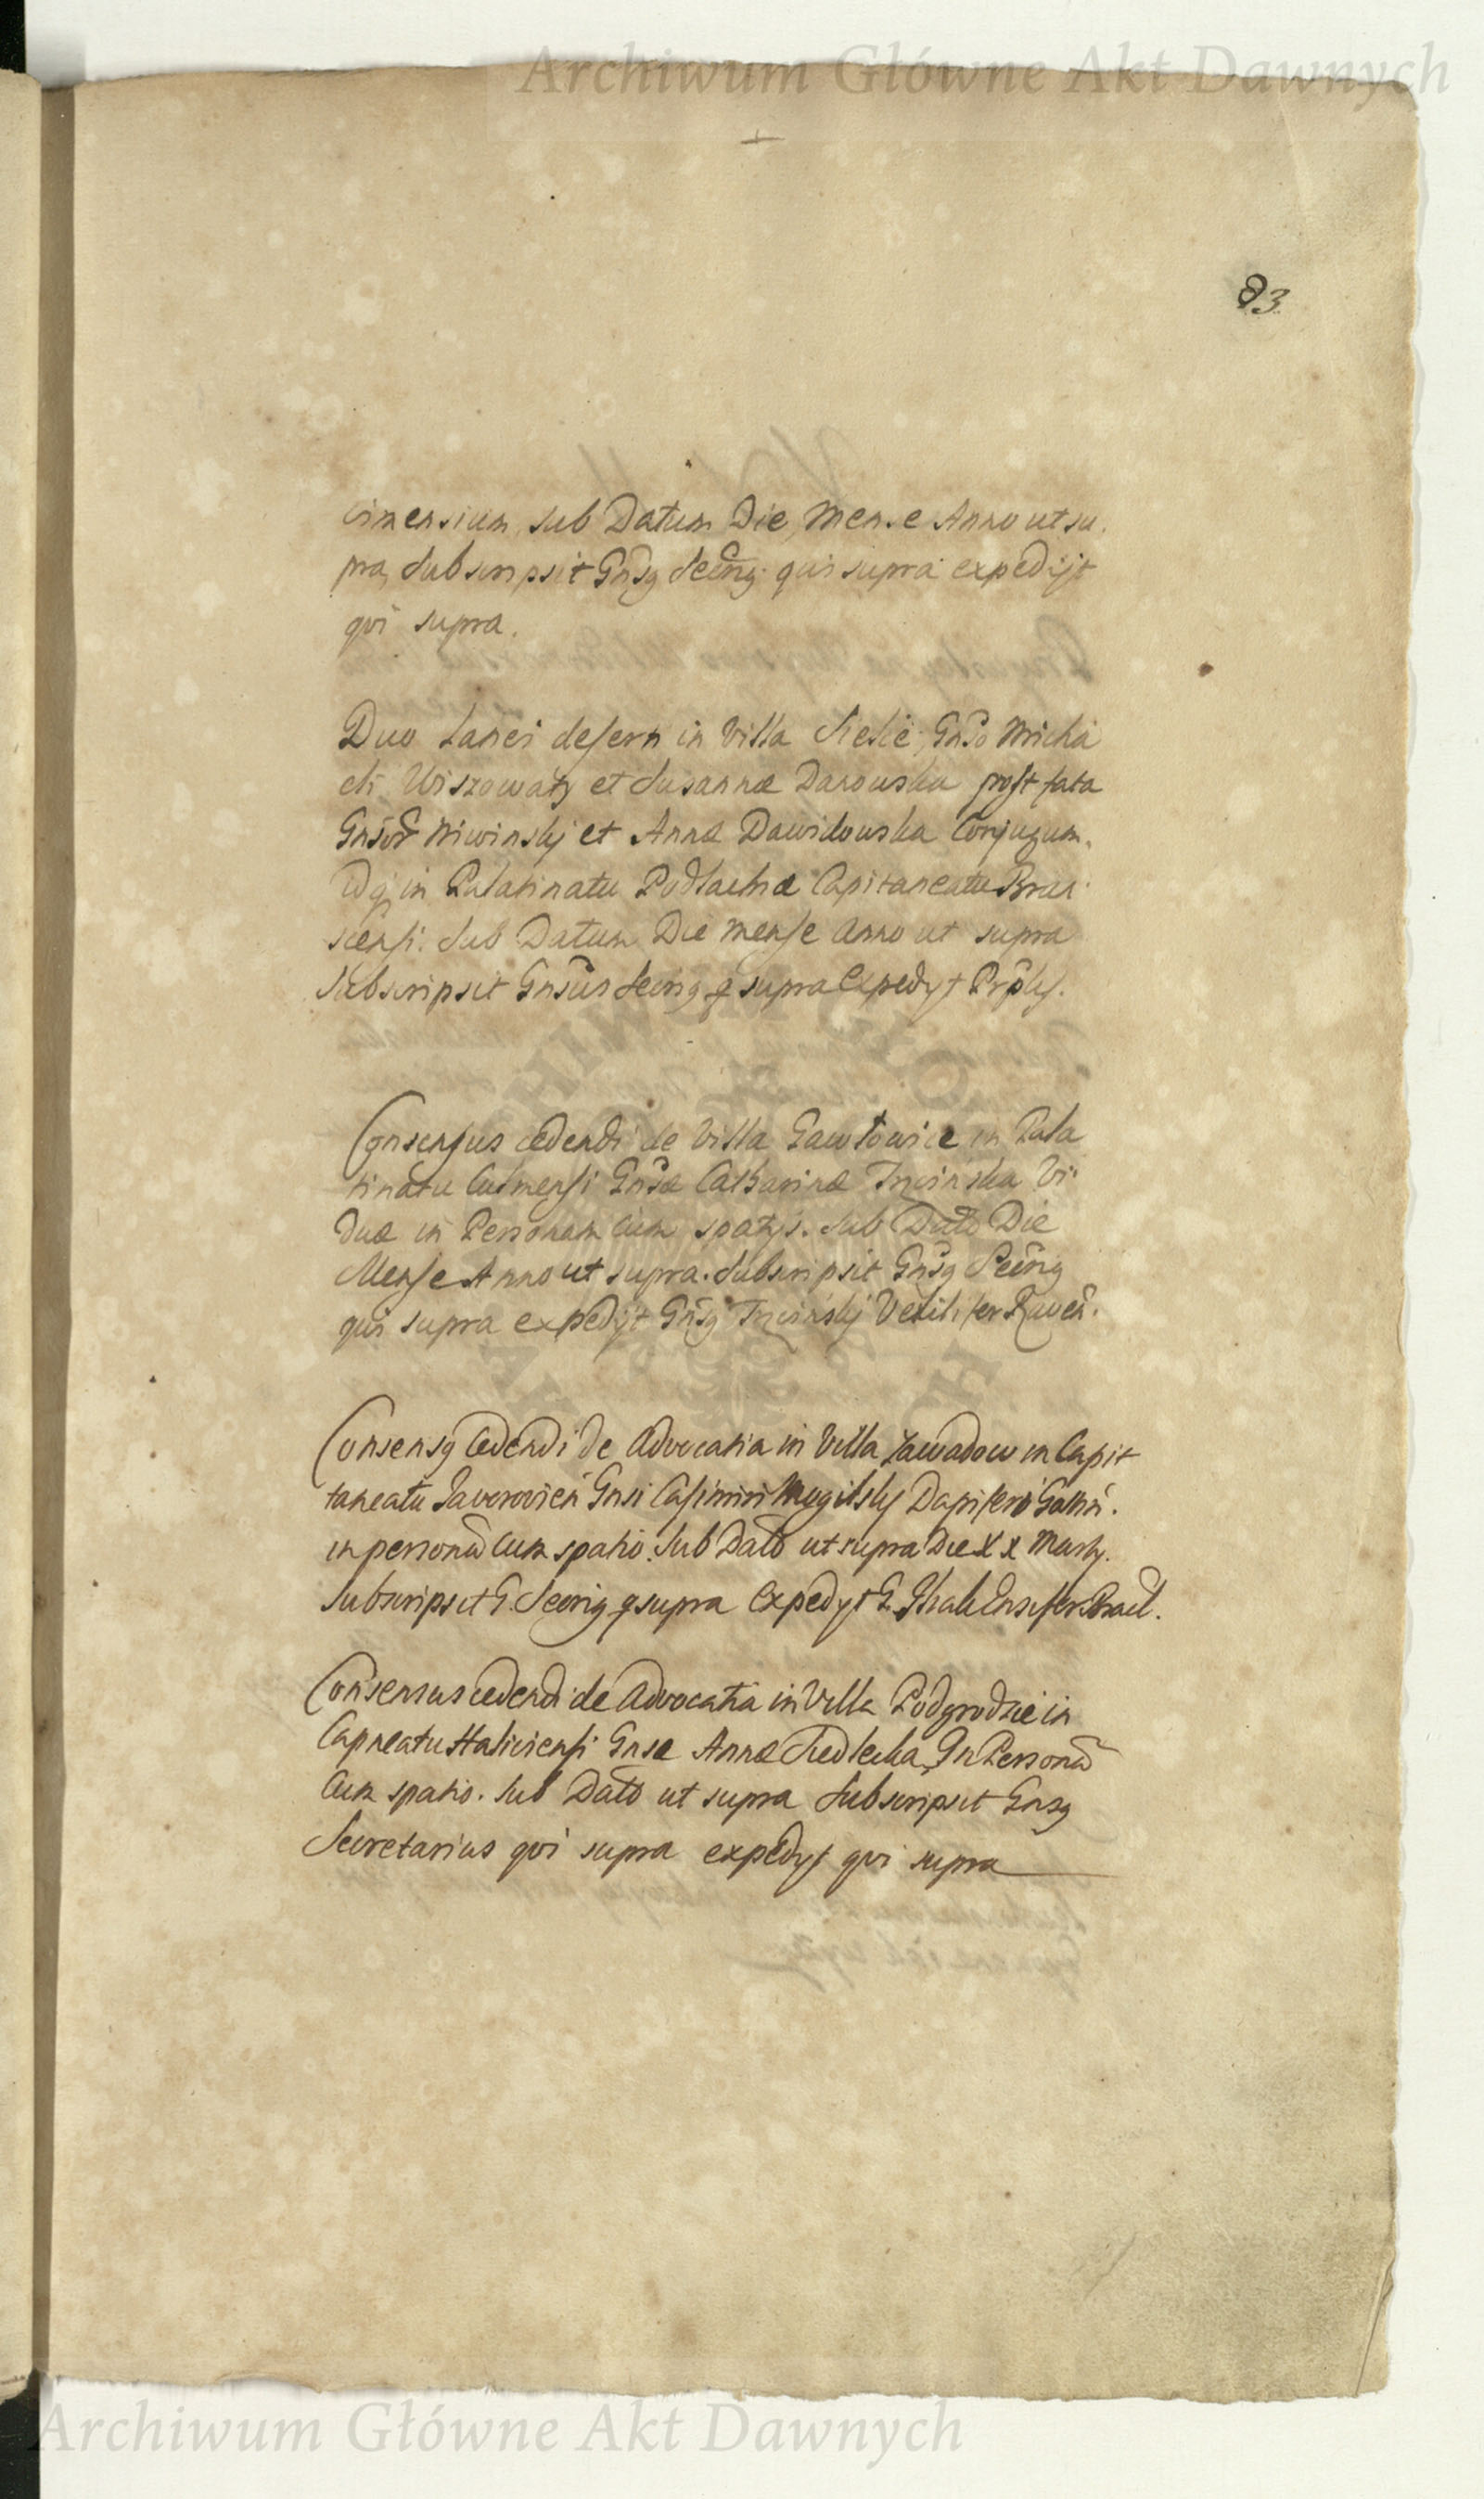 Archiwum Główne Akt Dawnych
83
cimensium, sub Datum Die, Mense Anno ut su.
pra, Subscripsit Gnsg Secrig. qui supra expedijt
qvi supra.
Duo Lanei deserti in Villa Gnso Micha
eli Wiszowaty et Susannæ post fata
et Annæ Dawidowska Conjugum.
in Palatinatu Podlachiæ Capitaneatu Bran
scensi. Sub Datum Die Mense Anno ut supra
Subscripsit Gnsus Secrig q supra Expedyt
Consensus cedendi de Villa Gawłowice in Pala
tinatu Culmensi Gnsæ Catharinæ Trzcinska Vi
duæ in Personam cum spatys. Sub Dato Die
Mense Anno ut supra. Subscripsit Gnsg Secrig
qui supra expedijt Gnsg Trzcinskj Vexilifer Raven.
Consensg Cedendi De Advocatia in Villa Zawadow in Capit
taneatu Javorovien Gnsi Casimiri Mogilskj Dapiferi
in personã Cum spatio. Sub Datõ ut supra Die XX Marty.
Subscripsit G. Secrig q supra Expedyt G. Ensifer Bracl.
Consensus cedendi de Advocatia in Villa Podgrodzie in
Capneatu Haliciensi Gnsæ Annæ Siedlecka, In Personã
Cum spatio. Sub Datõ ut supra Subscripsit Gnsg
Secretarius qvi supra expedyt qvi supra
Archiwum Główne Akt Dawnych